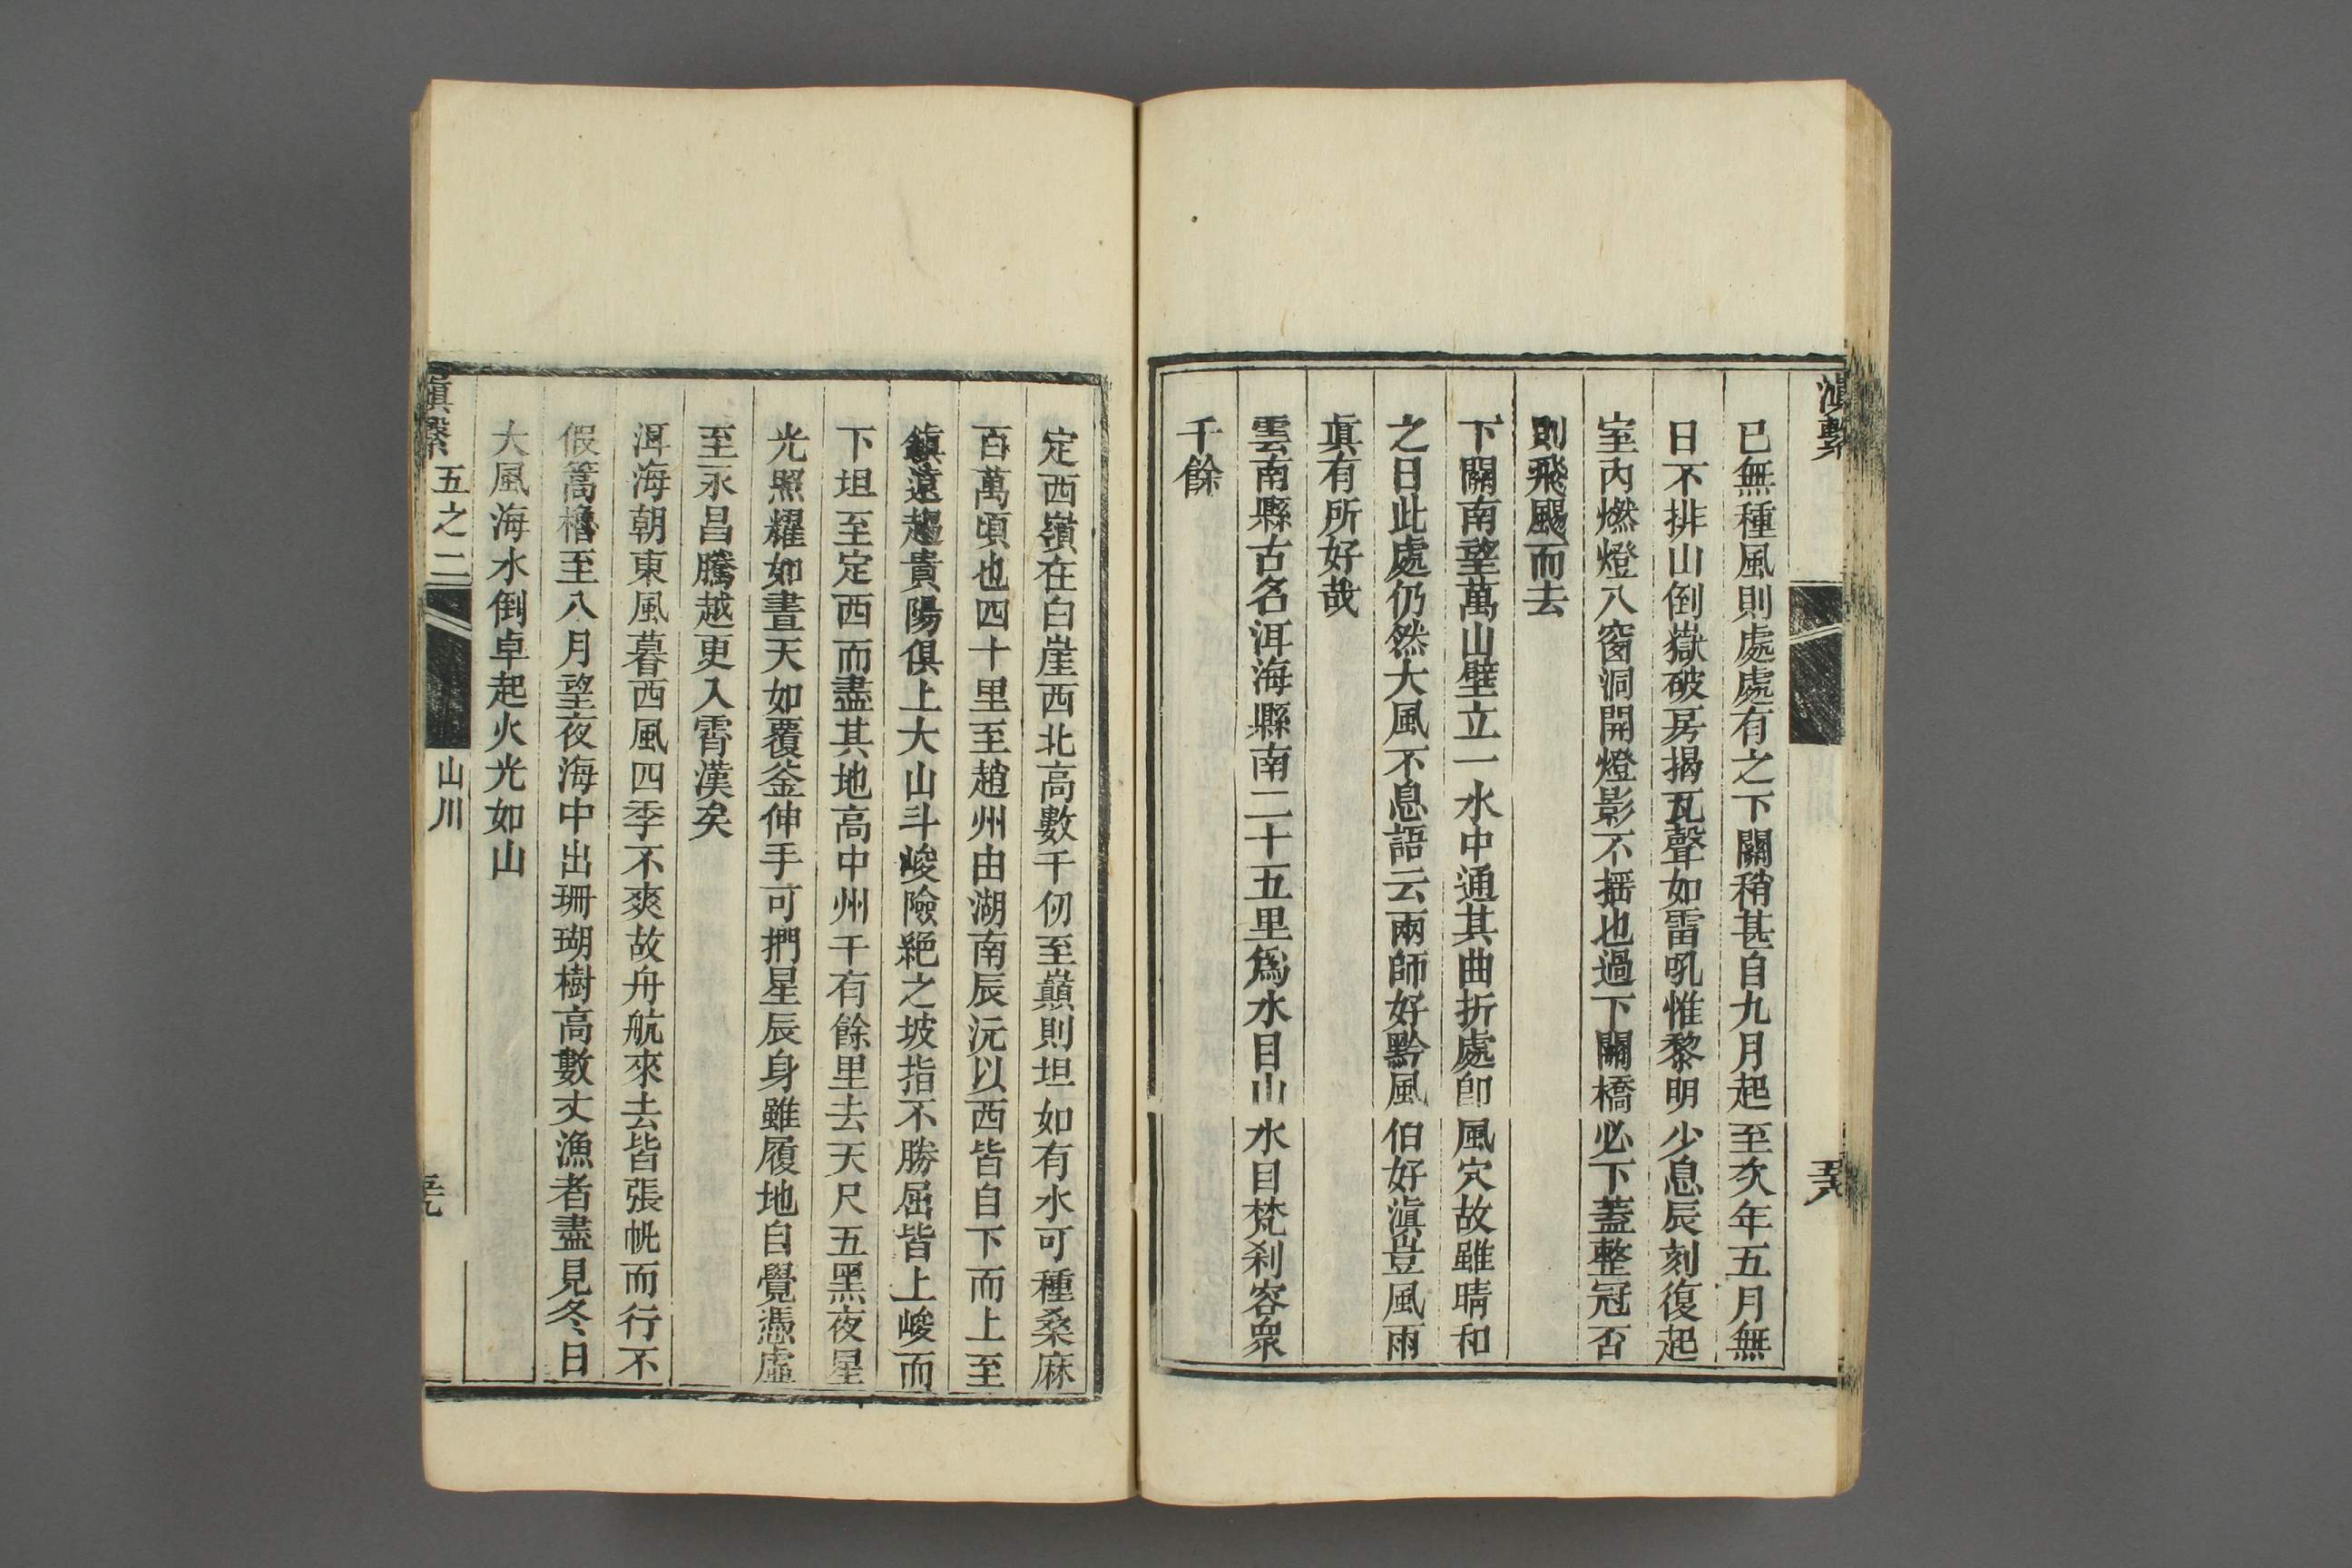 滇繫
五十八
已無種風則處處有之下關稍甚自九月起至次年五月無
日不排山倒嶽破房揭瓦聲如雷吼惟黎明少息辰刻復起
室內燃燈八窗洞開燈影不揺也過下關橋必下蓋整冠否
則飛颺而去
下關南望萬山壁立一水中通其曲折處卽風穴故雖晴和
之日此處仍然大風不息語云雨師好黔風伯好滇豈風雨
眞有所好哉
雲南縣古名洱海縣南二十五里爲水目山水目梵刹容衆
千餘
定西嶺在白崖西北高數千仞至巔則坦如有水可種桑麻
百萬頃也四十里至趙州由湖南辰沅以西皆自下而上至
鎮遠趨貴陽俱上大山斗峻險絕之坡指不勝屈皆上峻而
下坦至定西而盡其地高中州千有餘里去天尺五黑夜星
光照耀如晝天如覆釜伸手可捫星辰身雖履地自覺憑虛
至永昌騰越更入霄漢矣
洱海朝東風暮西風四季不爽故舟航來去皆張帆而行不
假篙櫓至八月望夜海中出珊瑚樹高數丈漁者盡見冬日
大風海水倒卓起火光如山
滇繫 五之二 山川